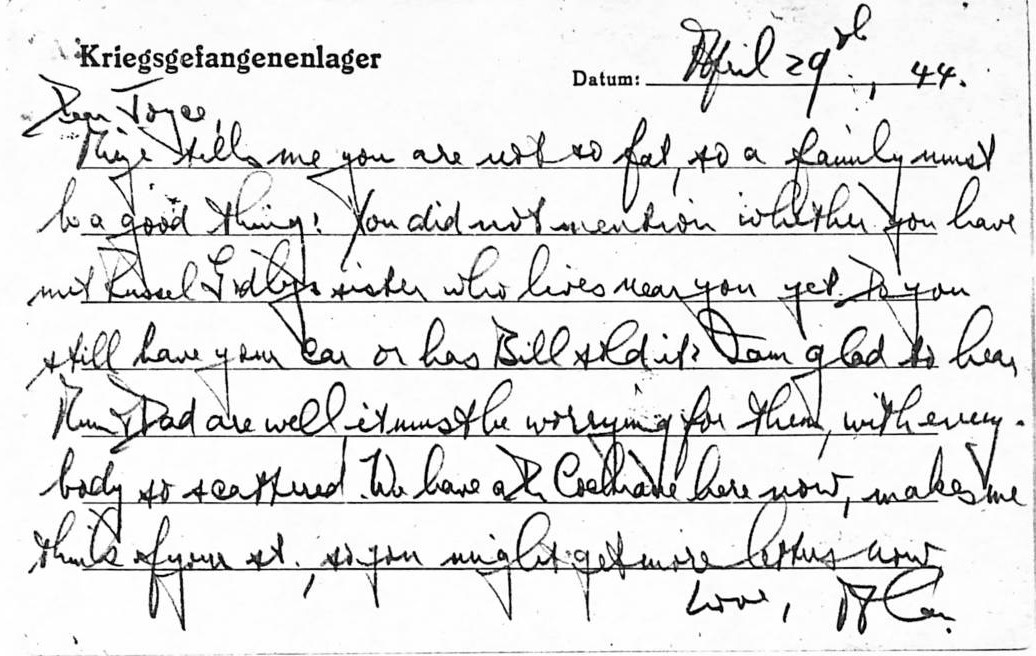 Kriegsgefangenenlager
Datum: April 29th, 44.
Dear Joyce,
tells me you are not so fat, so a family must
be a good thing! You did not mention whether you have
met Russel sister who lives near you yet. Do you
still have your car or has Bill sold it? I am glad to hear
Mum & Dad are well, it must be worrying for them, with every-
body so scattered. We have a Cochrane here now, makes me
think of your st., so you might get more letters now
Love,